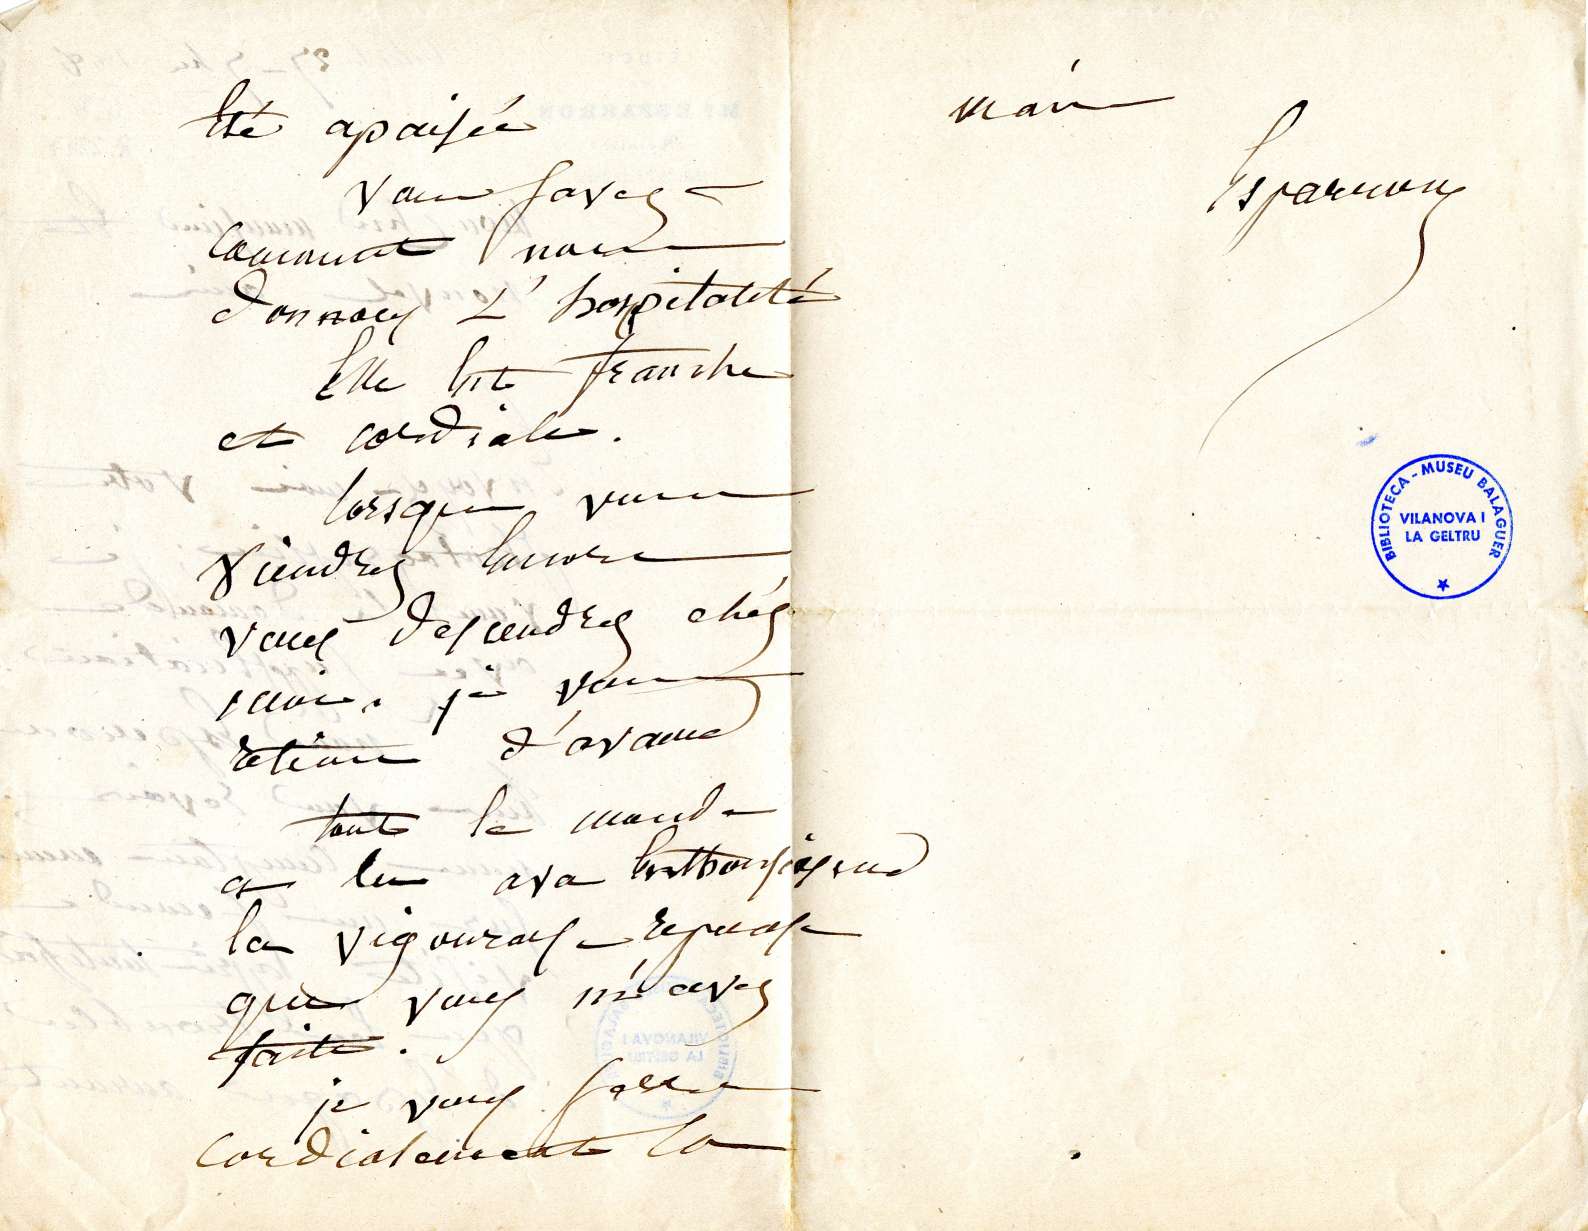 Eté apaisée
vous savez
comment nous
donnons L'hospitalité
Elle Est franche
et cordiale.
lorsque vous
viendrez Encore
vous descendrez chéz
moi. je vous
retiens d'avance
toute le monde
a lu avec Enthousiasme
la vigoureuse reponse
que vous m'avez
faite.
je vous serre
cordialement la
main
Esparron
BIBLIOTECA - MUSEU BALAGUER
VILANOVA I
LA GELTRU